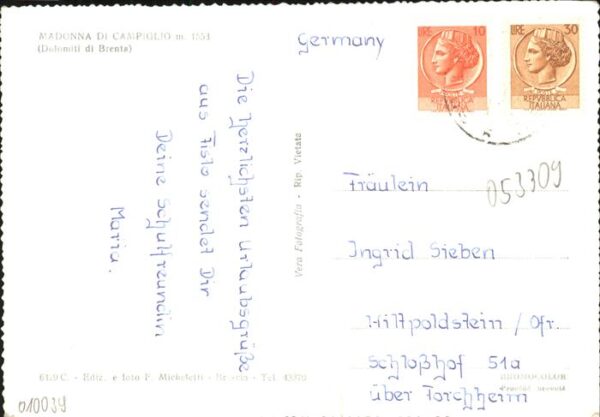 MADONNA DI CAMPIGLIO m. 1553
(Dolomiti di Brenta)
Germany
LIRE 10
REPVBBLICA
ITALIANA
LIRE 30
REPVBBLICA
ITALIANA
Die herzlichsten Urlaubsgrüße
aus Fisto sendet Dir
Deine Schulfreundin
Maria.
Vera Fotografia - Rip. Vietata
053309
Fräulein
Ingrid Sieben
Hiltpoldstein / Ofr.
Schloßhof 51a
über Forchheim
6149C. - Ediz. e foto F. Micheletti - Brescia - Tel. 43970
010039